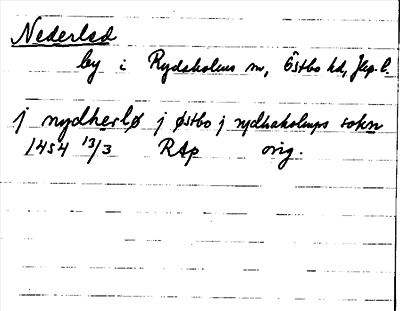 Nederled
by i Rydaholms sn, Östbo hd, Jkp. l.
j nydherlø j østbo j rydhaholmps sokn
1454 13/3 RAp orig.